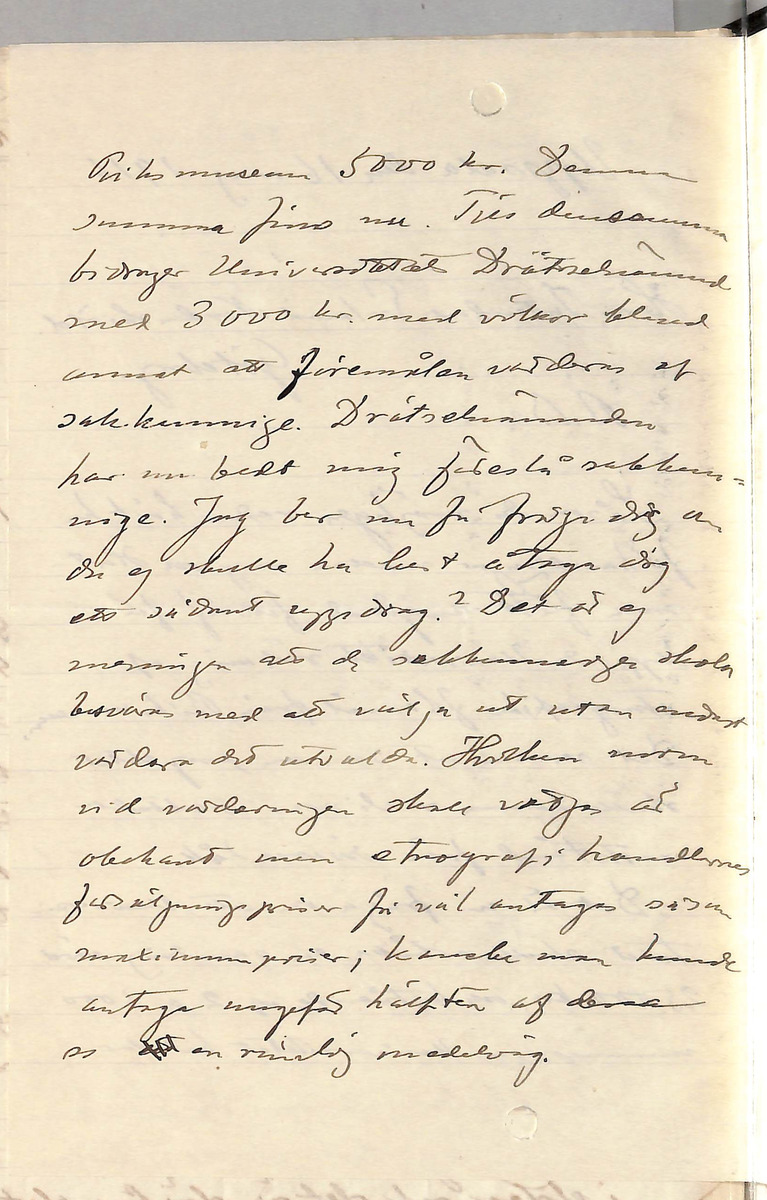 Riksmuseum 5000 kr. Denna
summa fins nu. Till densamma
bidrager Universitetets Drätselnämnd
med 3000 kr. med vilkor bland
annat att föremålen värderas af
sakkunnige. Drätselnämnden
har nu bedt mig föreslå sakkun-
nige. Jag ber nu få fråga dig om
du ej skulle ha lust åtaga dig
ett sådant uppdrag.? Det är ej
meningen att de sakkunnige skola
besväras med att välja ut utan endast
värdera det utvalda. Hvilken norm
vid värderingen skall väljas är
obekant men etnografihandlarnes
försäljningspriser få väl antagas såsom
maximumpriser; kanske man kunde
antaga ungefär hälften af dessa
ss en rimlig medelväg.